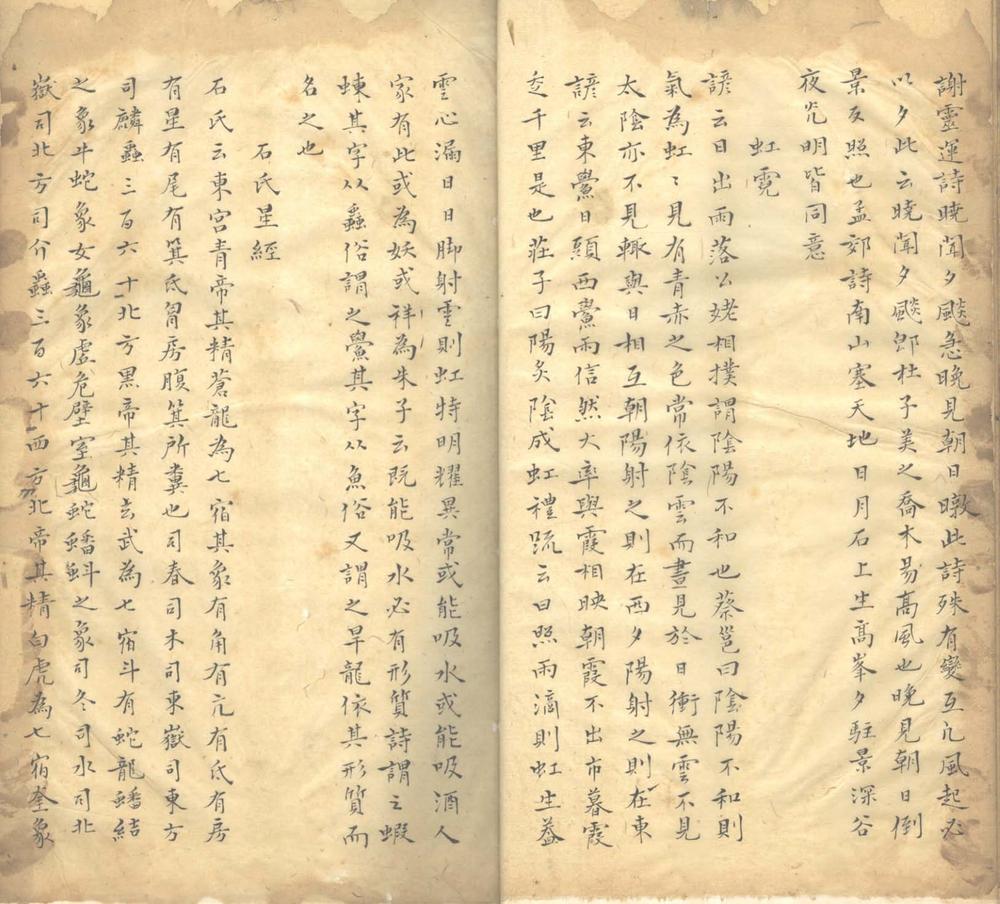 謝靈運詩曉聞夕飈急晚見朝日暾此詩殊有變互凢風起必
以夕此云曉聞夕飈郎杜子美之喬木易髙風也晚見朝日倒
景反照也孟郊詩南山塞天地日月石上生髙峯夕駐景深谷
夜光明皆同意
虹霓
諺云日出雨落公姥相撲謂陰陽不和也蔡邕曰陰陽不和則
氣為虹〻見有青赤之色常依陰雲而晝見於日衝無雲不見
太陰亦不見輙與日相互朝陽射之則在西夕陽射之則在東
諺云東鱟日頭西鱟雨信然大率與霞相映朝霞不出市暮霞
走千里是也莊子曰陽炙陰成虹禮䟽云日照雨滴則虹生葢
雲心漏日日脚射雲則虹特明耀異常或能吸水或能吸酒人
家有此或為妖或祥為朱子云既能吸水必有形質詩謂之蝃
蝀其字从蟲俗謂之鱟其字从魚俗又謂之旱龍依其形質而
名之也
石氏星經
石氏云東宮青帝其精蒼龍為七宿其象有角有亢有氐有房
有星有尾有箕氐胷房腹箕所糞也司春司木司東嶽司東方
司麟蟲三百六十北方黑帝其精玄武為七宿斗有蛇龍蟠結
之象牛蛇象女龜象虛危壁室龜蛇蟠蚪之象司冬司水司北
嶽司北方司介蟲三百六十西方北帝其精白虎為七宿奎象